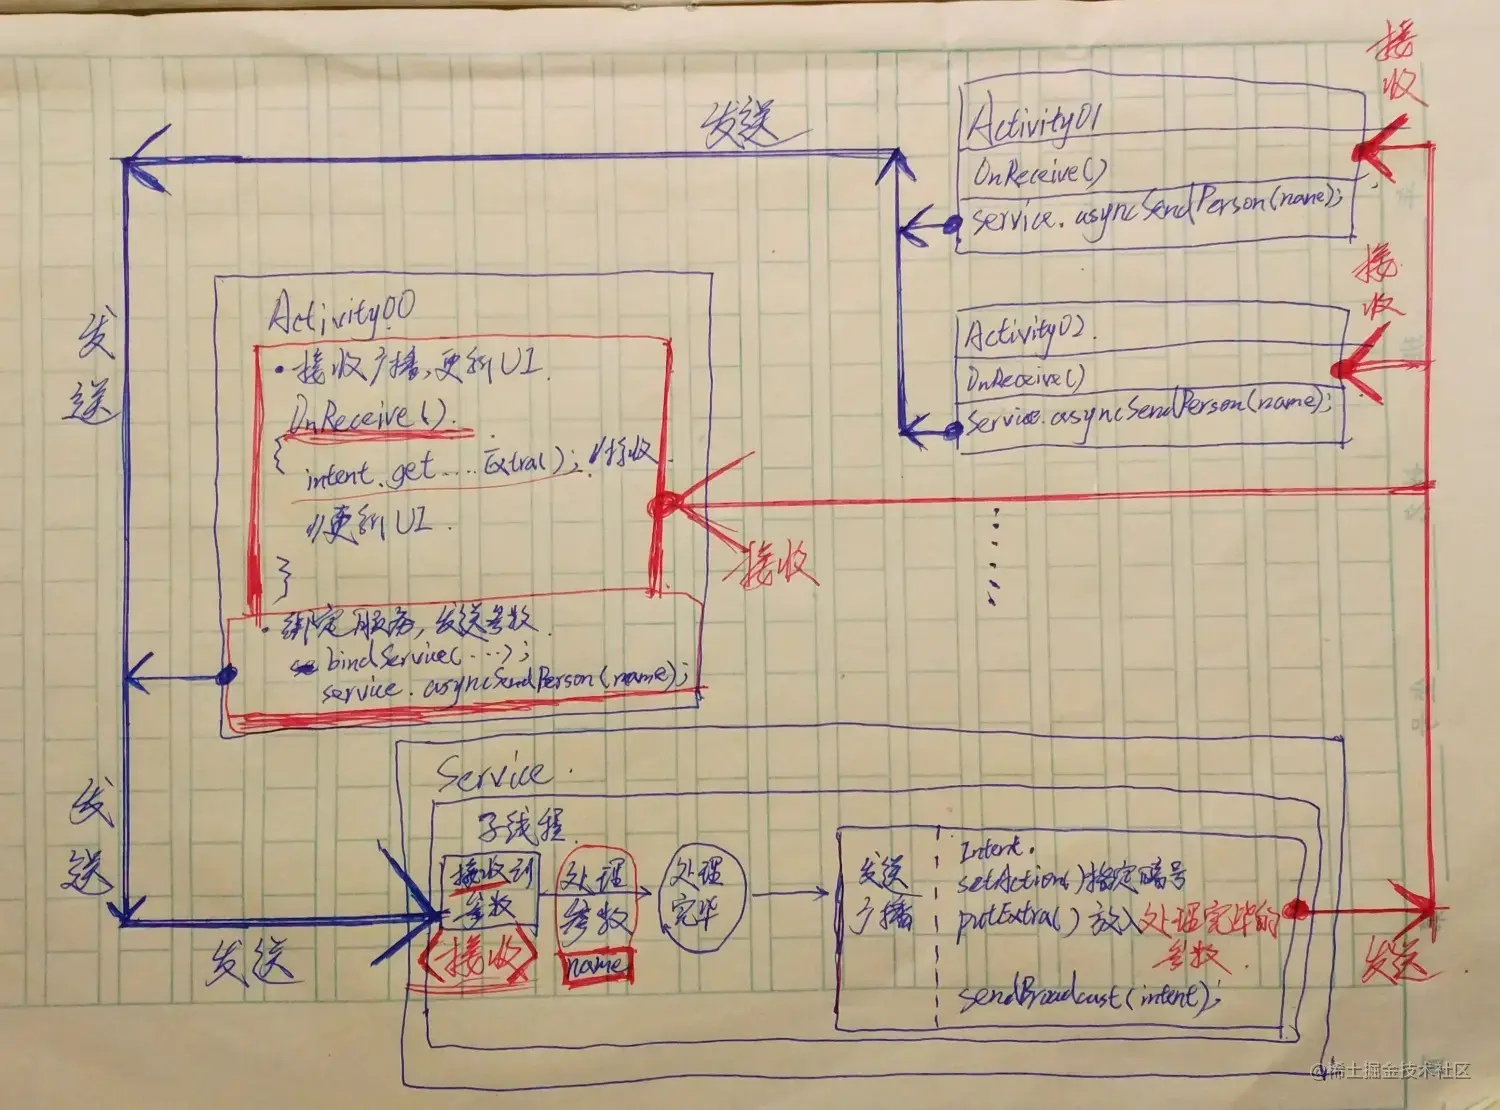 接收
发送
Activity01
OnReceive()
service.asyncSendPerson(name);
接收
Activity02.
OnReceive()
Service.asyncSendPerson(name);
发送
Activity00
• 接收广播,更新UI.
OnReceive().
{
intent.get....Extra(); //接收
//更新UI.
}
接收
• 绑定服务,发送参数.
bindService(...);
service.asyncSendPerson(name);
发送
Service.
子线程.
接收到
参数
<接收>
处理
参数
name
处理
完毕
发送
广播
Intent.
setAction()指定暗号
putExtra()放入处理完毕的
参数.
sendBroadcast(intent);
发送
发送
@稀土掘金技术社区